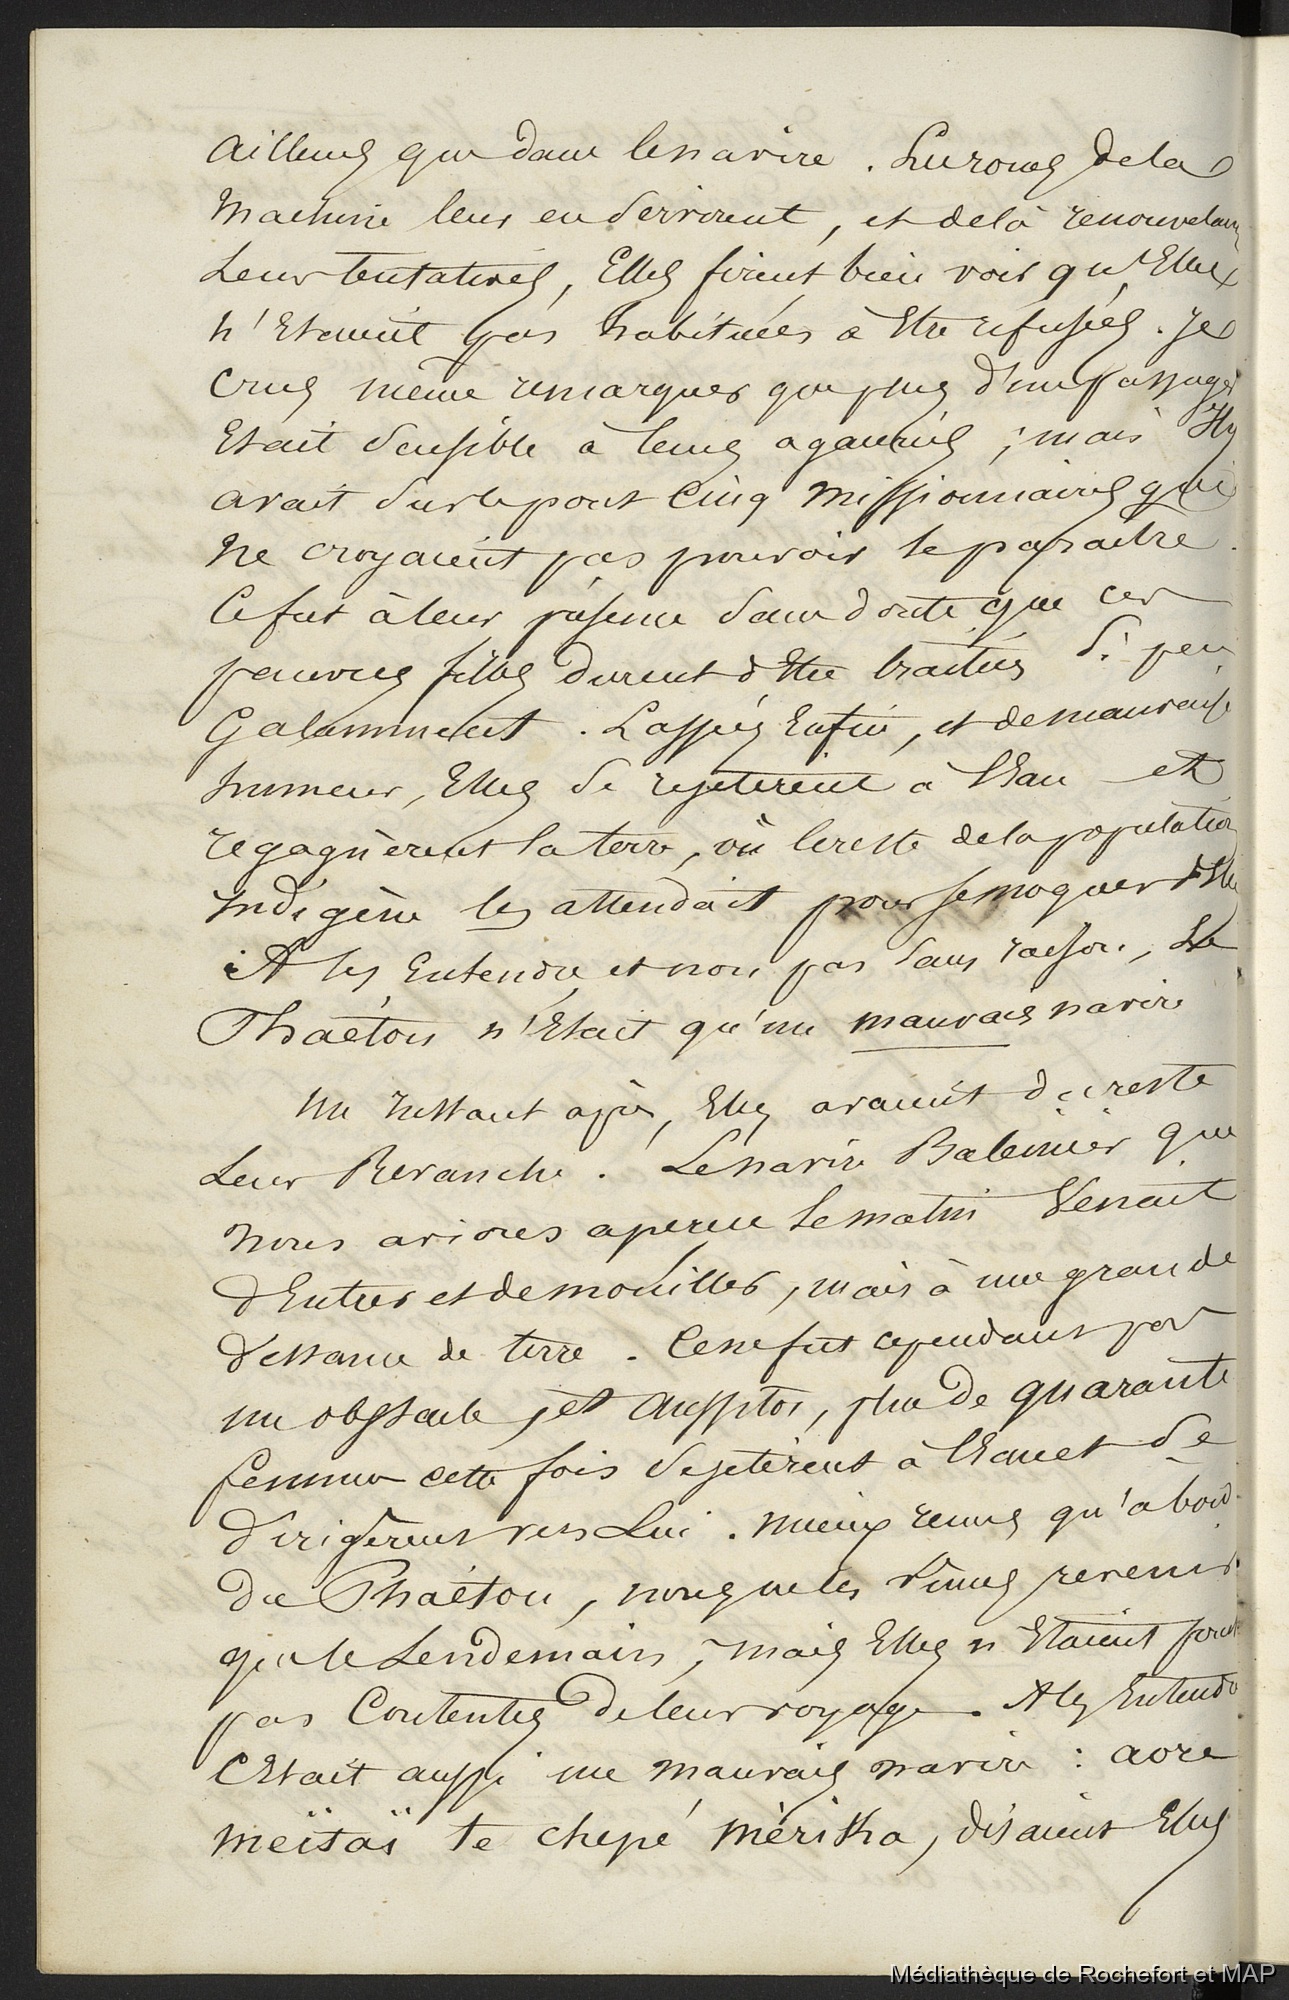 ailleurs que dans le navire. Les roues de la
Machine leur en servirent, et de là renouvelant
Leurs tentatives, Elles firent bien voir qu'Elles
n'Etaient pas habituées à Etre refusées. Je
Crus même remarquer que plus d'un passager
Etait Sensible à leurs agaceries ; mais Il y
avait Sur le pont Cinq Missionnaires qui
Ne croyaient pas pouvoir le paraître.
Ce fut à leur présence Sans doute que ces
pauvres filles durent d'Etre traitées Si peu
Galamment. Lassées Enfin, et de mauvaise
humeur, Elles Se rejetèrent à l'Eau et
regagnèrent la terre, où le reste de la population
Indigène les attendait pour se moquer d'Elles
A les Entendre, et non pas Sans raison, Le
Phaëton n'Etait qu'un mauvais navire
Un Instant après, Elles avaient du reste
Leur Revanche. Le navire Baleinier que
nous avions aperçu le matin Venait
d'Entrer et de mouiller, mais à une grande
distance de terre. Ce ne fut cependant pas
un obstacle, et Aussitôt, plus de quarante
femmes cette fois Se jetèrent à l'Eau et Se
dirigèrent vers Lui. Mieux reçues qu'à bord
du Phaëton, nous ne les Vimes revenir
que le Lendemain ; mais Elles n'Etaient pourt
pas Contentes de leur voyage. A les Entendre
C'Etait aussi un mauvais navire : aore
meïtaï te chepé mèrika, disaient Elles